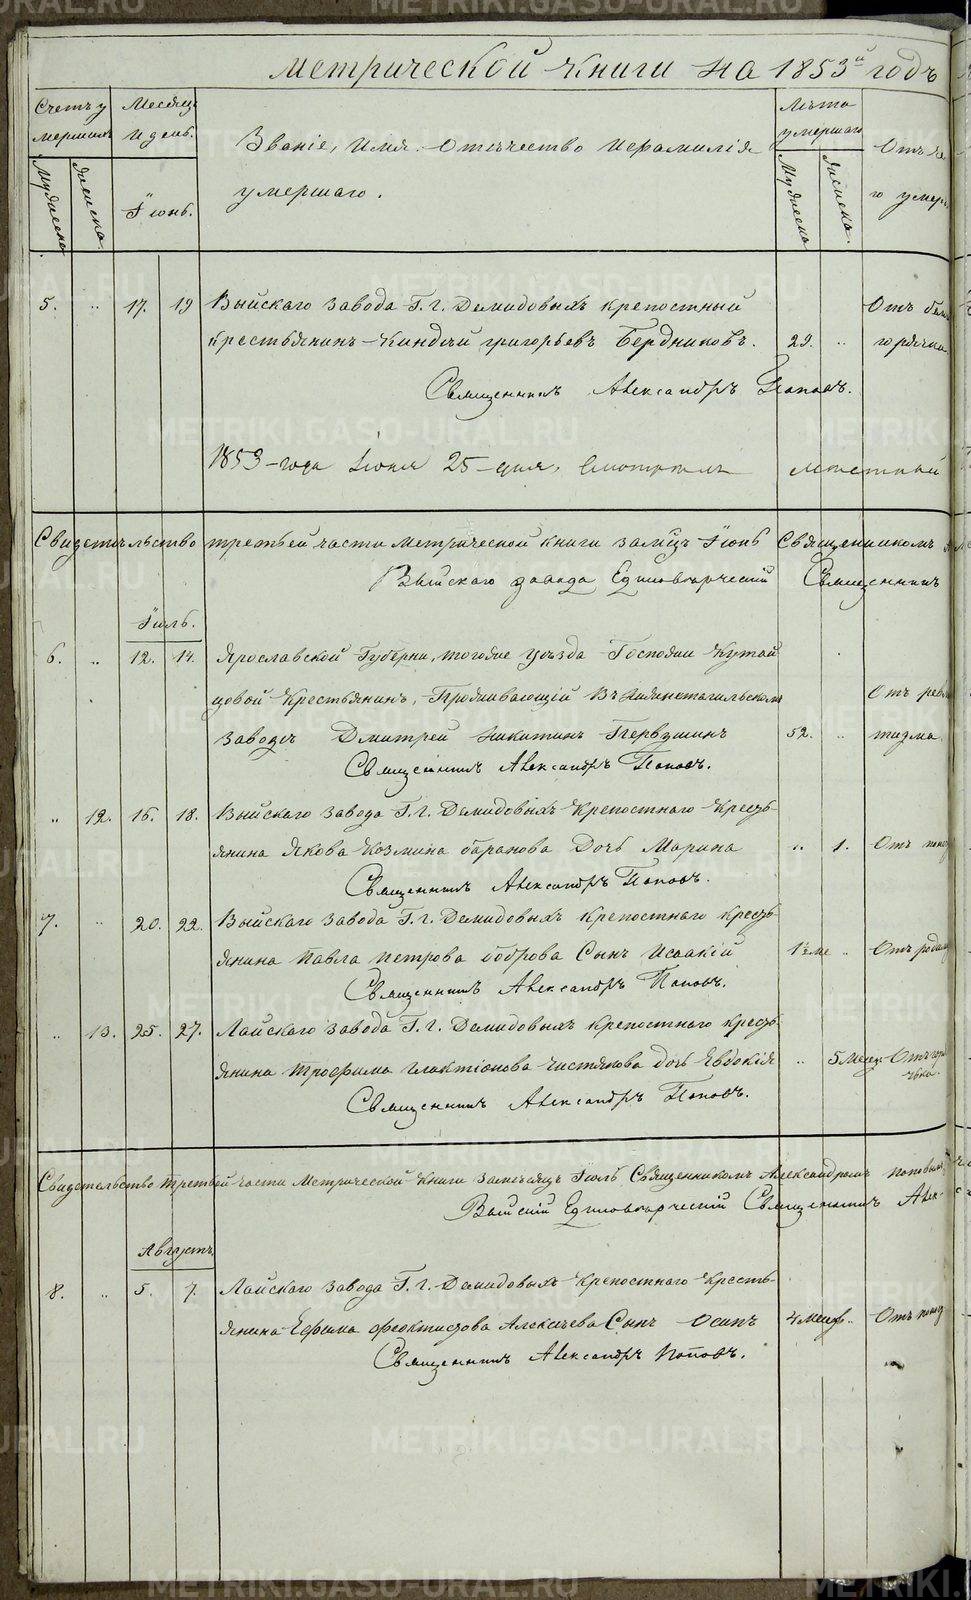 Метрической книги на 1853й годъ
Счетъ у Месяцъ Лѣта
мершихъ и день. умершаго
Званіе, Имя. Отечество и фамилія Отъ че
Мужеска Женска Мужеска Женска.
Іюнь. умершаго. го умер
5. „ 17. 19 Выйскаго завода Г. г. Демидовыхъ крепостный Отъ бел
крестьянинъ григорьевъ Бердниковъ. 29. „ горячки
Священникъ Александръ Поповъ.
1853 года Іюня 25 дня, Смотрелъ местный
Свидетельство третьей части метрической книги за мцъ Іюнь Священникомъ
Выйскаго завода Единоверческій Священникъ
Іюль.
6. „ 12. 14. Ярославской Губерни, тогоже уезда Господин Кутай
цовой Крестьянинъ, Проживающій въ Нижнетагильскомъ Отъ рев
заводе Дмитрей Никитинъ Первушинъ 52. „ тизма.
Священникъ Александръ Поповъ.
„ 12. 16. 18. Выйскаго завода Г. г. Демидовыхъ Крепостнаго Кресть
янина Якова Козмина баранова Дочь Марина „ 1. Отъ
Священникъ Александръ Поповъ.
7. „ 20. 22. Выйскаго завода Г. г. Демидовыхъ крепостнаго кресть
янина Павла петрова боброва Сынъ Исаакій „ Отъ родим
Священникъ Александръ Поповъ.
„ 13. 25. 27. Лайскаго завода Г. г. Демидовыхъ крепостнаго кресть
янина Трофима галактіонова чистякова дочь Евдокія „ 5 Месец. Отъ горя
чька.
Священникъ Александръ Поповъ.
Свидетельство третьей части Метрической Книги За месяцъ Іюль Священникомъ Александромъ поповымъ
Выйскій Единоверческій Священникъ Алек
Августъ.
8. „ 5. 7. Лайскаго завода Г. г. Демидовыхъ Крепостнаго Кресть
янина Ефима феоктистова Алексичева Сынъ Осипъ 4 месец. „ Отъ
Священникъ Александръ Поповъ.
METRIKI.GASO-URAL.RU